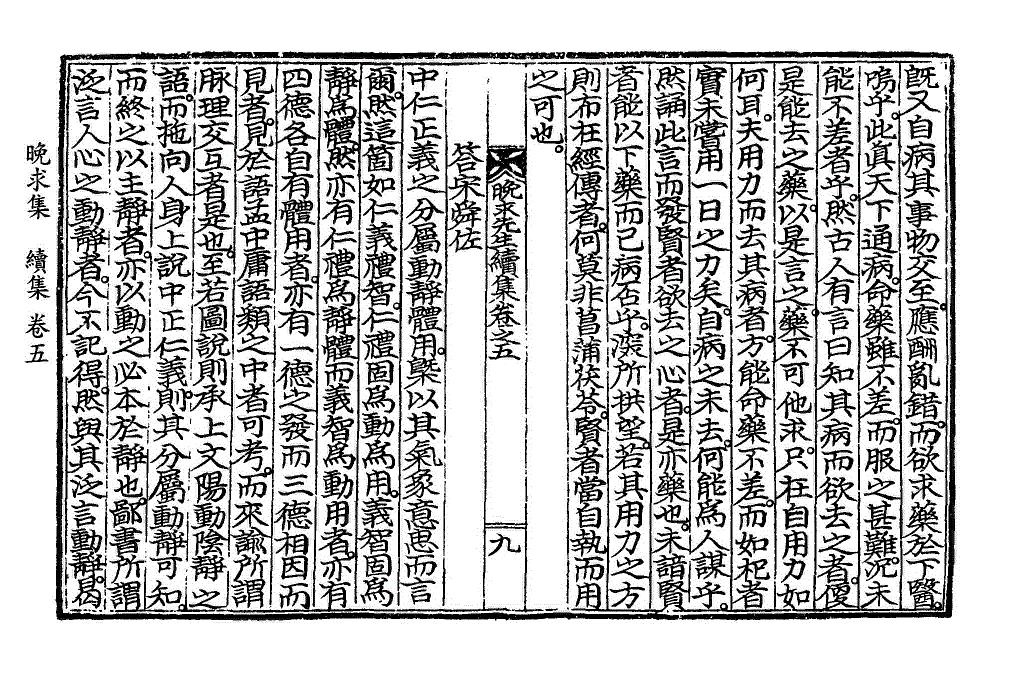 旣又自病其事物交至。應酬亂錯。而欲求藥於下醫。
嗚乎。此眞天下通病。命藥雖不差。而服之甚難。況未
能不差者乎。然古人有言曰知其病而欲去之者。便
是能去之藥。以是言之。藥不可他求。只在自用力如
何耳。夫用力而去其病者。方能命藥不差。而如杞者
實未嘗用一日之力矣。自病之未去。何能爲人謀乎。
然誦此言而發賢者欲去之心者。是亦藥也。未諳賢
者能以下藥而已病否乎。深所拱望。若其用力之方
則布在經傳者。何莫非菖蒲茯苓。賢者當自執而用
之可也。
晩求先生續集卷之五
九
答宋舜佐
中仁正義之分屬動靜體用。槩以其氣象意思而言
爾。然這箇如仁義禮智。仁禮固爲動爲用。義智固爲
靜爲體。然亦有仁禮爲靜體而義智爲動用者。亦有
四德各自有體用者。亦有一德之發而三德相因而
見者。見於語孟中庸語類之中者可考。而來諭所謂
脉理交互者是也。至若圖說則承上文陽動陰靜之
語。而拖向人身上說中正仁義。則其分屬動靜可知。
而終之以主靜者。亦以動之必本於靜也。鄙書所謂
泛言人心之動靜者。今不記得。然與其泛言動靜。曷
晩求集　續集　卷五